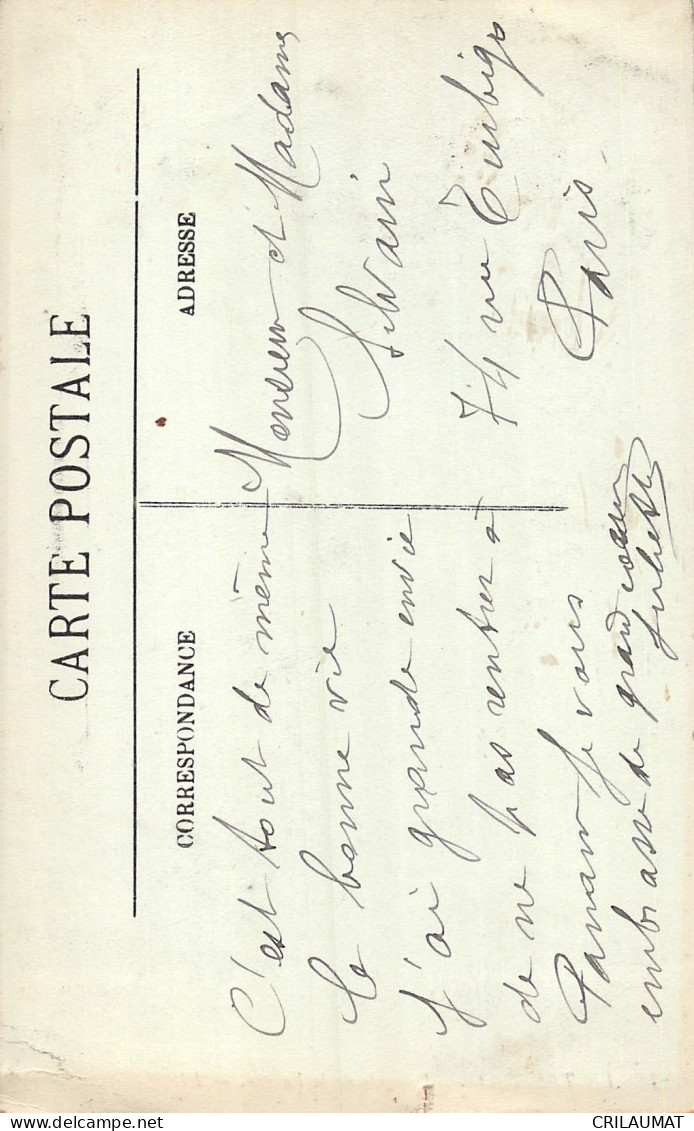 CARTE POSTALE
CORRESPONDANCE
C'est tout de même
la bonne vie
j'ai grande envie
de ne pas rentrer à
Panam je vous
embrasse de grand cœur
Juliette
ADRESSE
Monsieur et Madame
Silvain
74 rue Turbigo
Paris.
CRILAUMAT